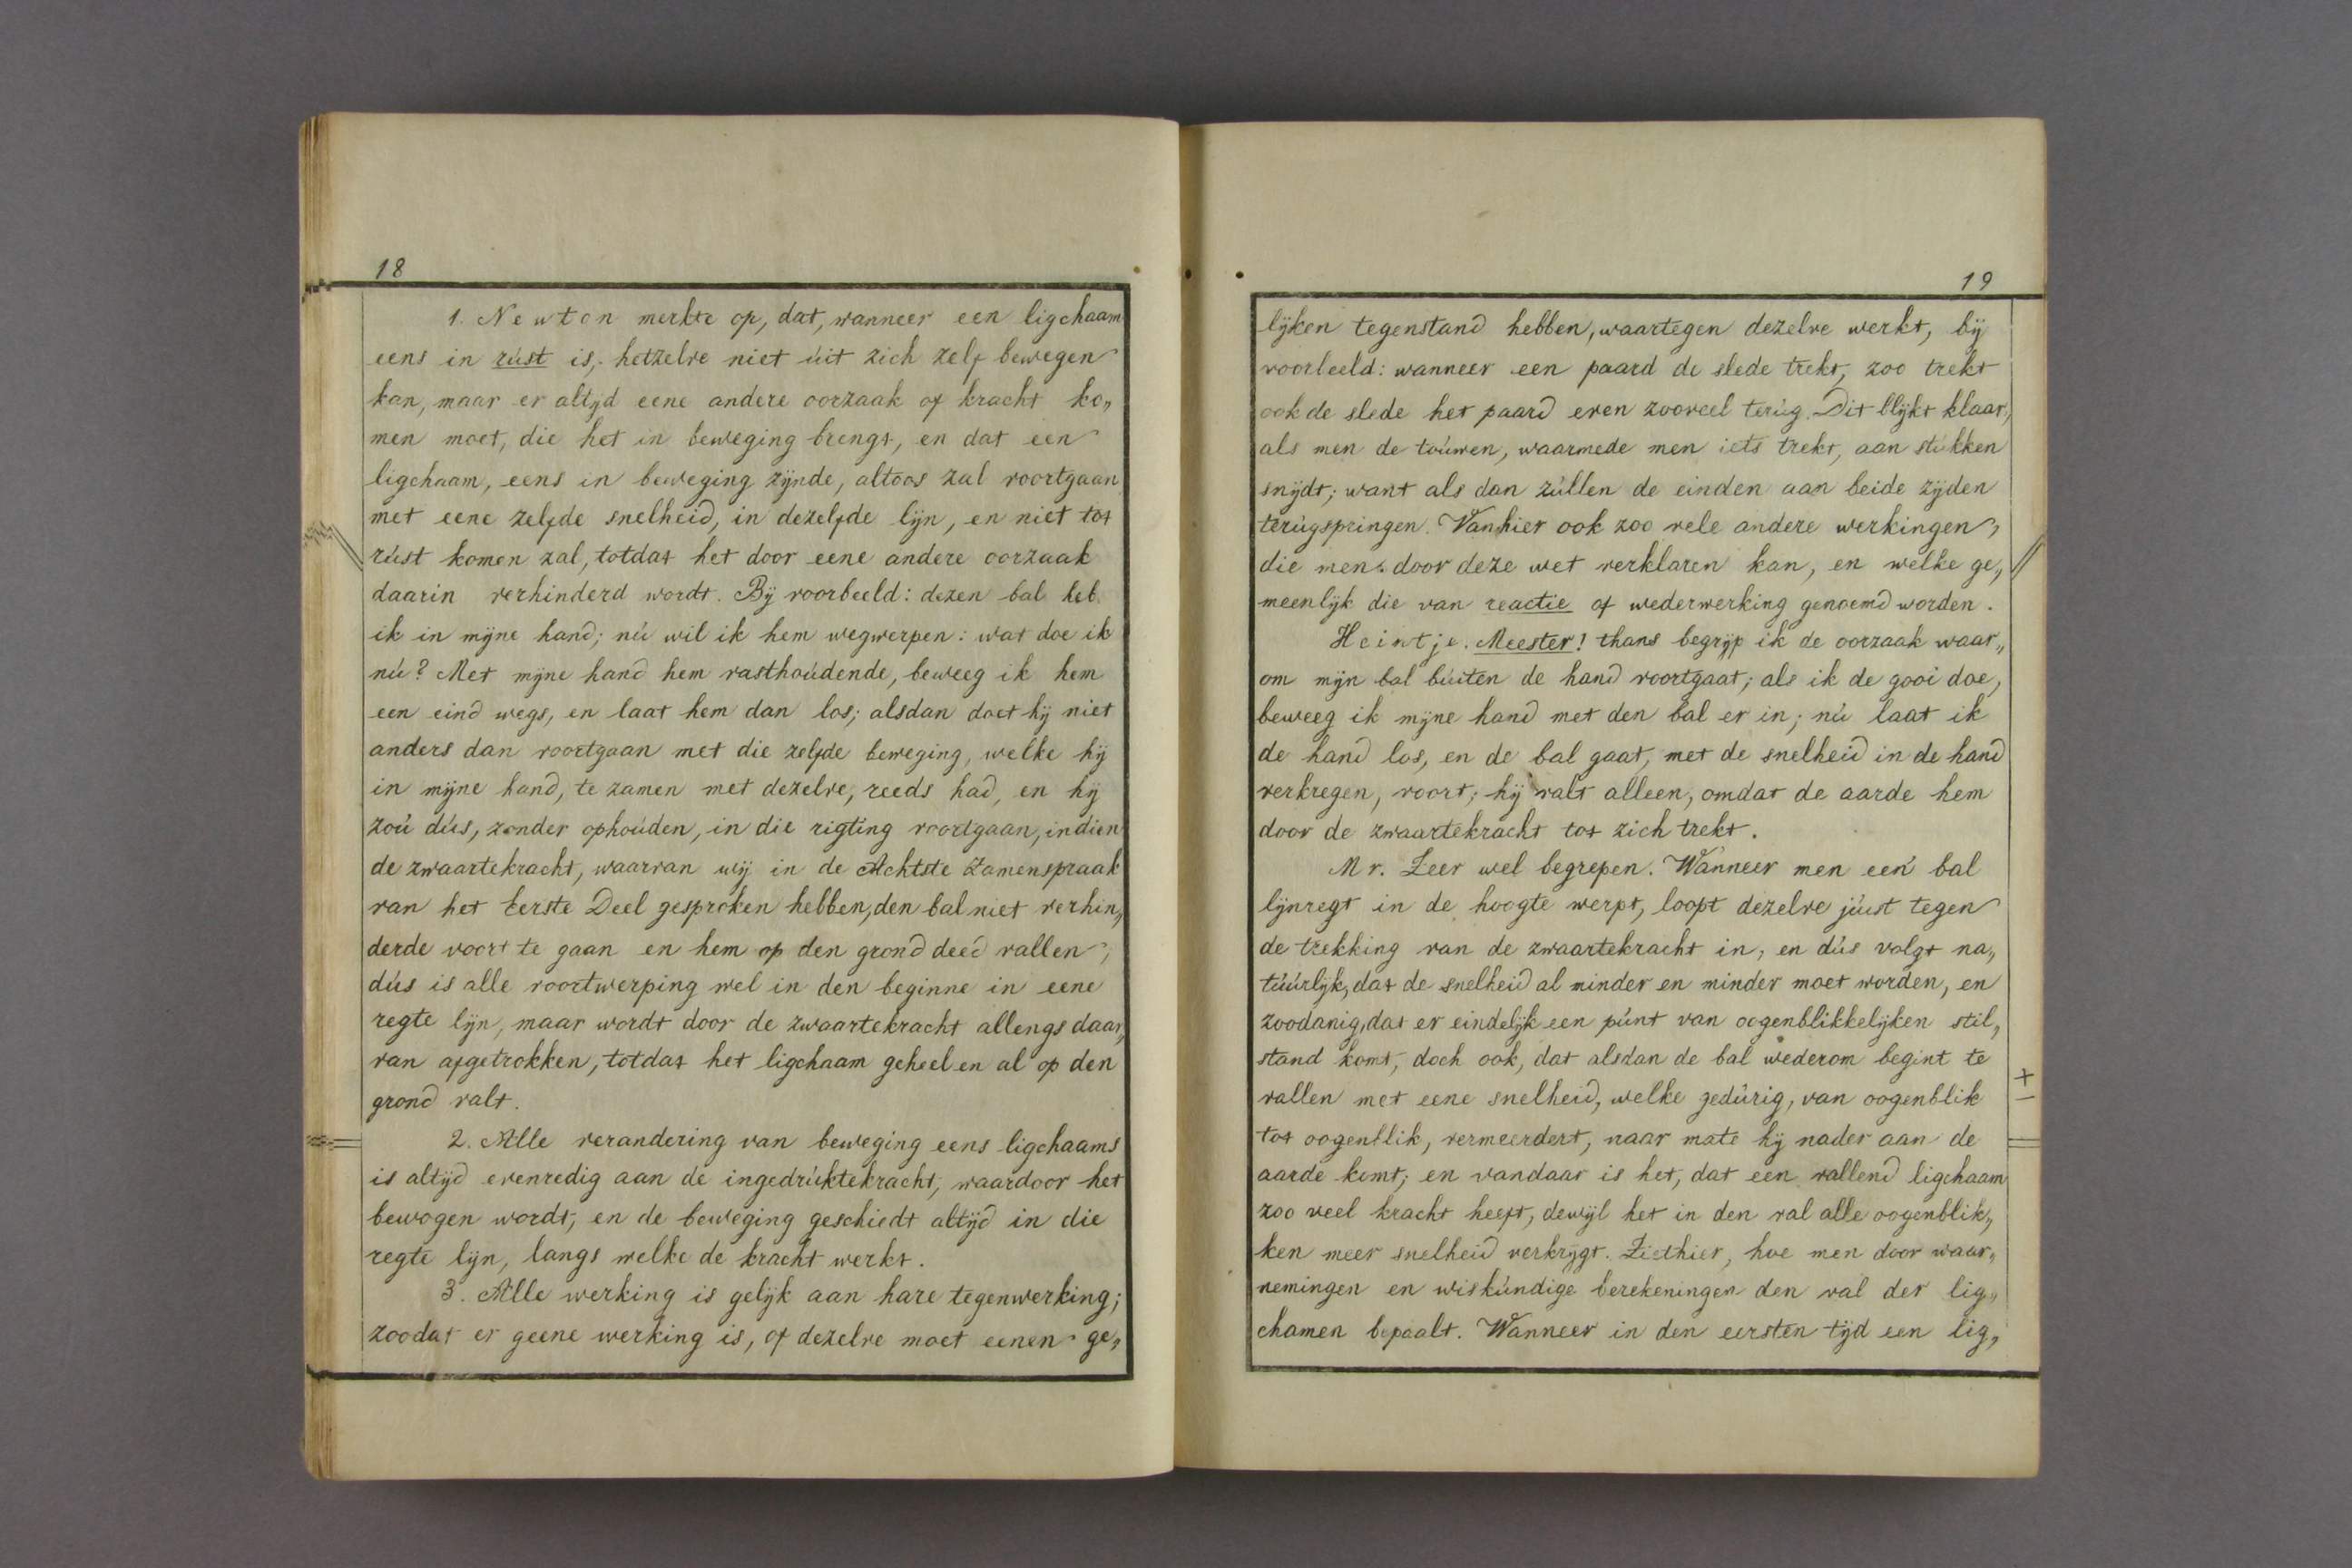 18
1. Newton merkte op, dat, wanneer een ligchaam
eens in rúst is, hetzelve niet úit zich zelf bewegen
kan, maar er altijd eene andere oorzaak of kracht ko„
men moet, die het in beweging brengt, en dat een
ligchaam, eens in beweging zijnde, altoos zal voortgaan
met eene zelfde snelheid, in dezelfde lijn, en niet tot
rúst komen zal, totdat het door eene andere oorzaak
daarin verhinderd wordt. Bij voorbeeld: dezen bal heb
ik in mijne hand; nú wil ik hem wegwerpen: wat doe ik
nú? Met mijne hand hem vasthoúdende, beweeg ik hem
een eind wegs, en laat hem dan los; alsdan doet hij niet
anders dan voortgaan met die zelfde beweging, welke hij
in mijne hand, te zamen met dezelve, reeds had, en hij
zoú dús, zonder ophoúden, in die rigting voortgaan, indien
de zwaartekracht, waarvan wij in de Achtste Zamenspraak
van het Eerste Deel gesproken hebben, den bal niet verhin„
derde voort te gaan en hem op den grond deed vallen;
dús is alle voortwerping wel in den beginne in eene
regte lijn, maar wordt door de zwaartekracht allengs daar„
van afgetrokken, totdat het ligchaam geheel en al op den
grond valt.
2. Alle verandering van beweging eens ligchaams
is altijd evenredig aan de ingedrúktekracht, waardoor het
bewogen wordt, en de beweging geschiedt altijd in die
regte lijn, langs welke de kracht werkt.
3. Alle werking is gelijk aan hare tegenwerking;
zoodat er geene werking is, of dezelve moet eenen ge„
19
lijken tegenstand hebben, waartegen dezelve werkt, bij
voorbeeld: wanneer een paard de slede trekt, zoo trekt
ook de slede het paard even zooveel terúg. Dit blijkt klaar,
als men de toúwen, waarmede men iets trekt, aan stúkken
snijdt; want als dan zúllen de einden aan beide zijden
terúgspringen. Vanhier ook zoo vele andere werkingen,
die men door deze wet verklaren kan, en welke ge„
meenlijk die van reactie of wederwerking genoemd worden.
Heintje. Meester! thans begrijp ik de oorzaak waar„
om mijn bal búiten de hand voortgaat; als ik de gooi doe,
beweeg ik mijne hand met den bal er in; nú laat ik
de hand los, en de bal gaat, met de snelheid in de hand
verkregen, voort; hij valt alleen, omdat de aarde hem
door de zwaartekracht tot zich trekt.
Mr. Zeer wel begrepen. Wanneer men een bal
lijnregt in de hoogte werpt, loopt dezelve júist tegen
de trekking van de zwaartekracht in; en dús volgt na„
túúrlijk, dat de snelheid al minder en minder moet worden, en
zoodanig, dat er eindelijk een púnt van oogenblikkelijken stil„
stand komt, doch ook, dat alsdan de bal wederom begint te
vallen met eene snelheid, welke gedúrig, van oogenblik
tot oogenblik, vermeerdert, naar mate hij nader aan de
aarde komt; en vandaar is het, dat een vallend ligchaam
zoo veel kracht heeft, dewijl het in den val alle oogenblik„
ken meer snelheid verkrijgt. Ziethier, hoe men door waar„
nemingen en wiskúndige berekeningen den val der lig„
chamen bepaalt. Wanneer in den eersten tijd een lig„